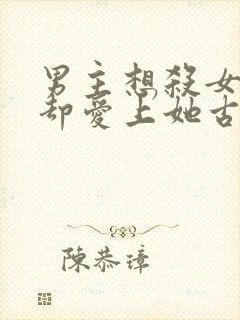 男主想殺女
却愛上她古
陳恭璋